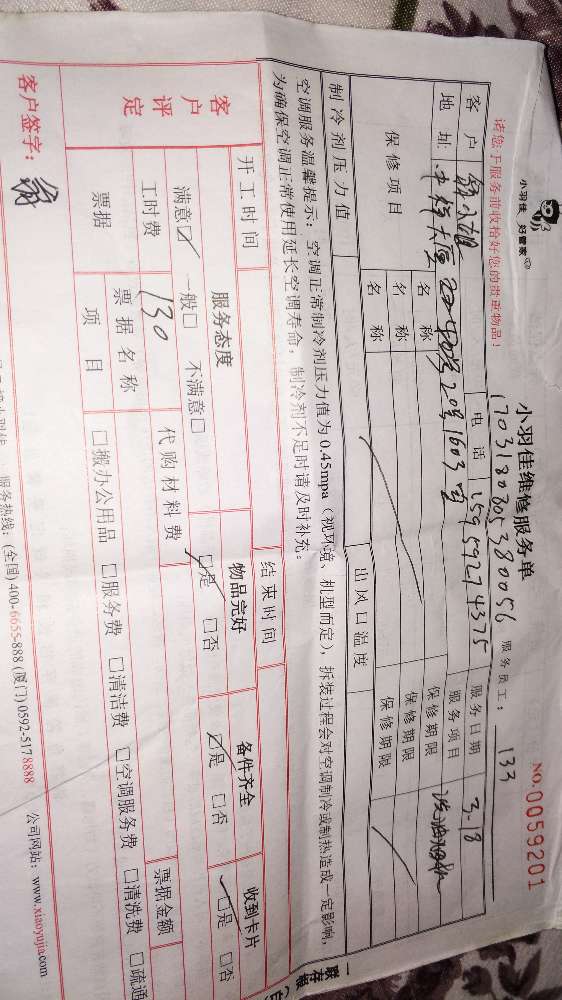 小羽佳 好管家
小羽佳维修服务单
NO.0059201
请您于服务前收拾好您的贵重物品！
1703180805380056
服务员工： 133
客户 小姐 电话 15959274375 服务日期 3-18
地址 20号1603室 服务项目
保修项目 名称 保修期限
名称 保修期限
名称 保修期限
制冷剂压力值 出风口温度
空调服务温馨提示：空调正常制冷剂压力值为0.45mpa（视环境、机型而定），拆装过程会对空调制冷或制热造成一定影响，
为确保空调正常使用延长空调寿命，制冷剂不足时请及时补充。
开工时间 结束时间
客户评定 服务态度 物品完好 备件齐全 收到卡片
满意☑ 一般□ 不满意□ ☑是 □否 ☑是 □否 ☑是 □否
工时费 130 代购材料费
票据 票据名称 票据金额
项目 □搬办公用品 □服务费 □清洁费 □空调服务费 □清洗费 □疏通
客户签字：
服务热线：(全国)400-6655-888 (厦门)0592-5178888 公司网站：www.xiaoyujia.com
一联存根（白